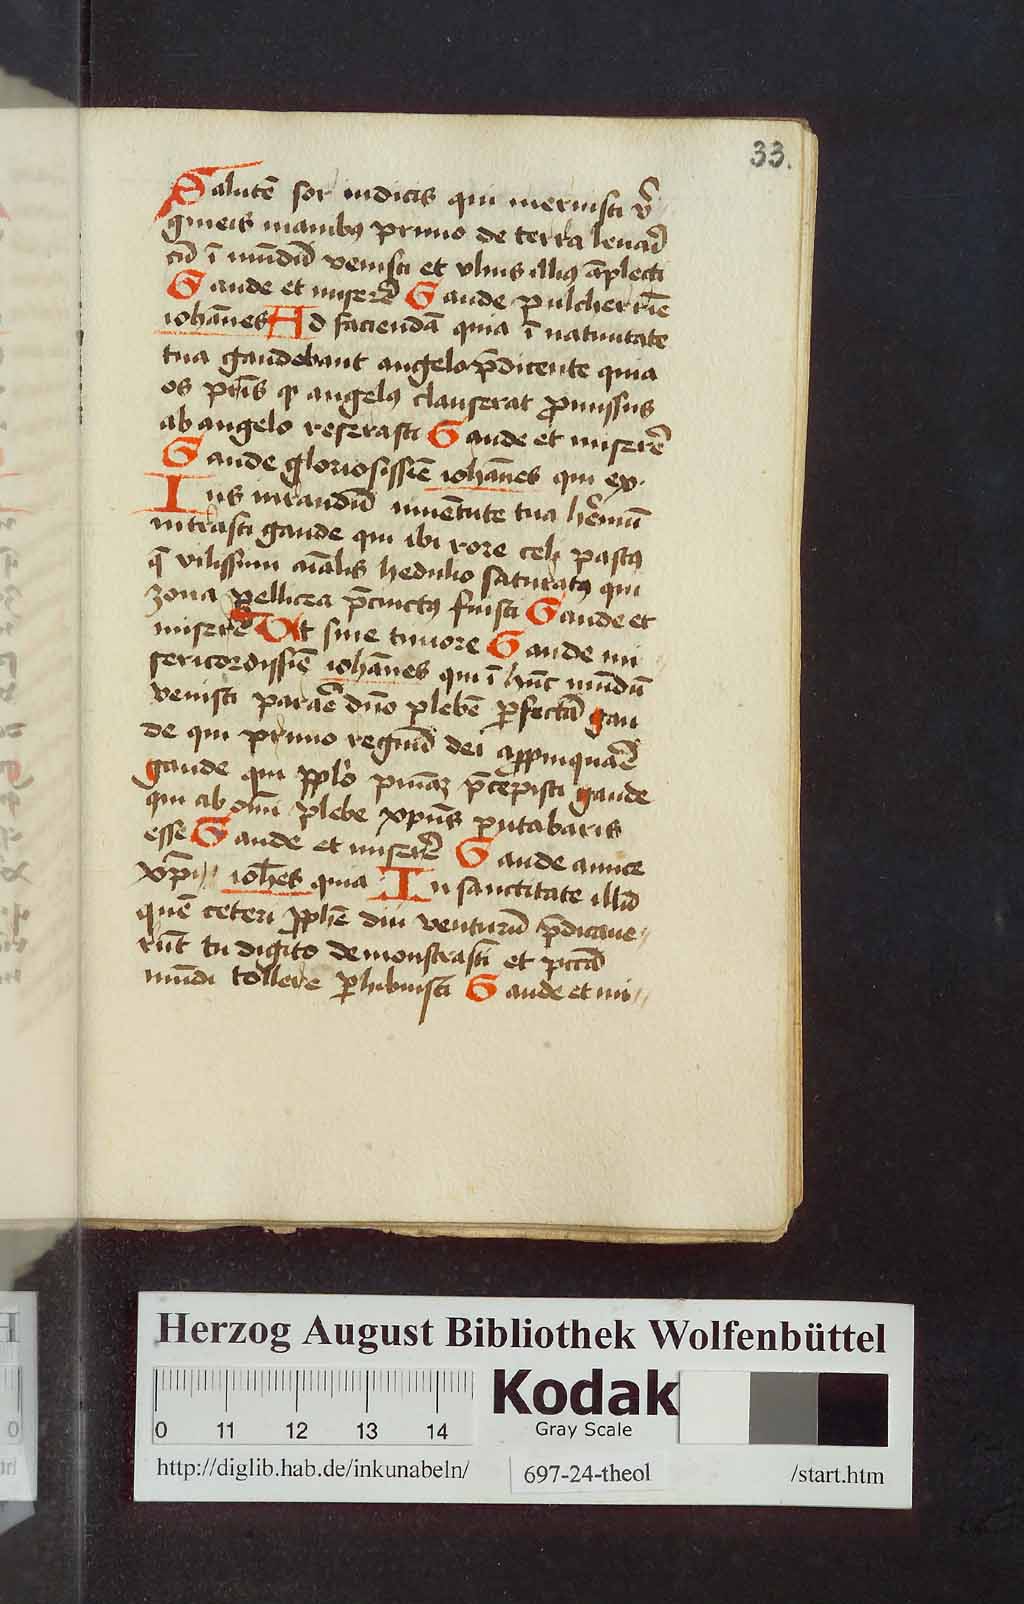 33.
Salutē for iudicis qui meruisti v̄
gineis manibꝰ primo de terra leuaͬ
cū ī mūdū venisti et vlnis illiꝰ āplecti
Gaude et miserē Gaude pulcherrīe
iohānes Ad faciendā quia ī natiuitate
tua gaudebant angelo p̄dicente quia
os pr̄is qͥ angelꝰ clauserat ꝓmissus
ab angelo reserasti Gaude et miserē
Gaude gloriosissīe iohānes qui ex
Ius iurandū iuuētute tua hērmū
intrasti gaude qui ibi rore celi pastꝰ
vilissimi aīalis hedulio saturatꝰ qui
zona pellicea p̄cinctꝰ fuisti Gaude et
miserē Ut sine timore Gaude mi
sericordissīe iohānes qui ī hūc mūdū
venisti paraͬe dn̄o plebē ꝑfectā gau
de qui primo regnū dei appīnquaͬe
gaude qui pplō pniāꝫ p̄cepisti gaude
qui ab om̄i plebe xpūs putabaris
esse Gaude et miserē Gaude amice
xp̄i // ioh̄es quia In sanctitate illū
quē ceteri ꝓph̄e diu venturū p̄dicaue //
rūt tu digito demonstrasti et pctā
mūdi tollere ꝑhibuisti Gaude et mi //
Herzog August Bibliothek Wolfenbüttel
0 11 12 13 14
Kodak
Gray Scale
http://diglib.hab.de/inkunabeln/
697-24-theol
/start.htm